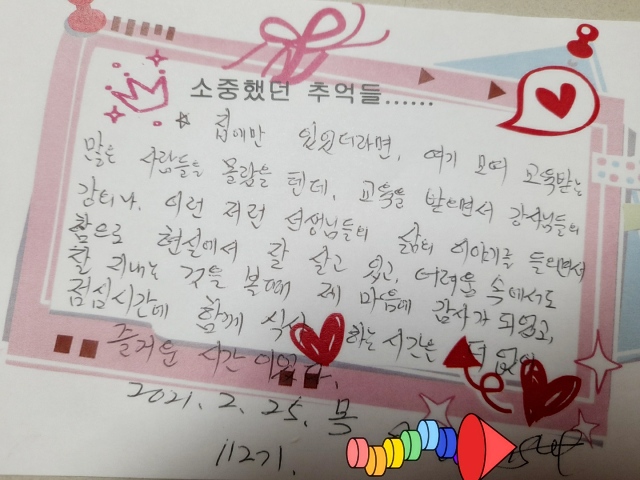 소중했던 추억들......
집에만 있었더라면, 여기 모여 교육받는
많은 사람들을 몰랐을 텐데, 교육을 받으면서 강사님들의
강의나, 이런 저런 선생님들의 삶의 이야기를 들으면서
참으로 현실에서 잘 살고 있고, 어려움 속에서도
잘 지내는 것을 볼때 제 마음에 감사가 되었고,
점심시간에 함께 식사 하는 시간은 더 없이
즐거운 시간이었다.
2021. 2. 25. 목
112기.